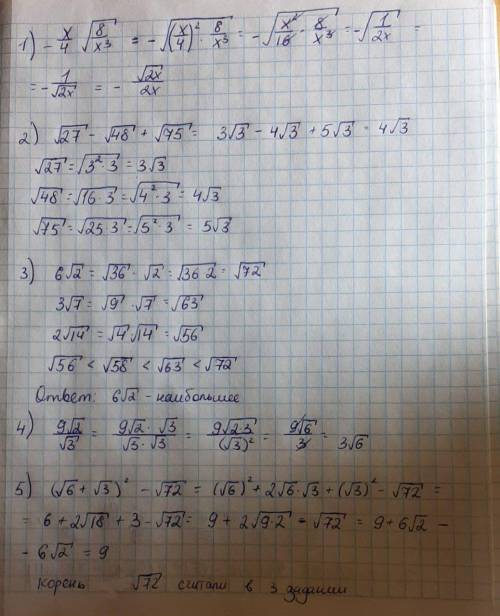 1) -x/4 √(8/x³) = -√((x/4)² · 8/x³) = -√(x²/16 · 8/x³) = -√(1/2x) =
= -1/√2x = -√2x/2x
2) √27 - √48 + √75 = 3√3 - 4√3 + 5√3 = 4√3
√27 = √(3²·3) = 3√3
√48 = √(16·3) = √(4²·3) = 4√3
√75 = √(25·3) = √(5²·3) = 5√3
3) 6√2 = √36 · √2 = √(36·2) = √72
3√7 = √9 · √7 = √63
2√14 = √4 √14 = √56
√56 < √58 < √63 < √72
Ответ: 6√2 - наибольшее
4) 9√2/√3 = 9√2·√3/√3·√3 = 9√(2·3)/(√3)² = 9√6/3 = 3√6
5) (√6 + √3)² - √72 = (√6)² + 2√6·√3 + (√3)² - √72 =
= 6 + 2√18 + 3 - √72 = 9 + 2√(9·2) - √72 = 9 + 6√2 -
- 6√2 = 9
Корень √72 считали в 3 задании